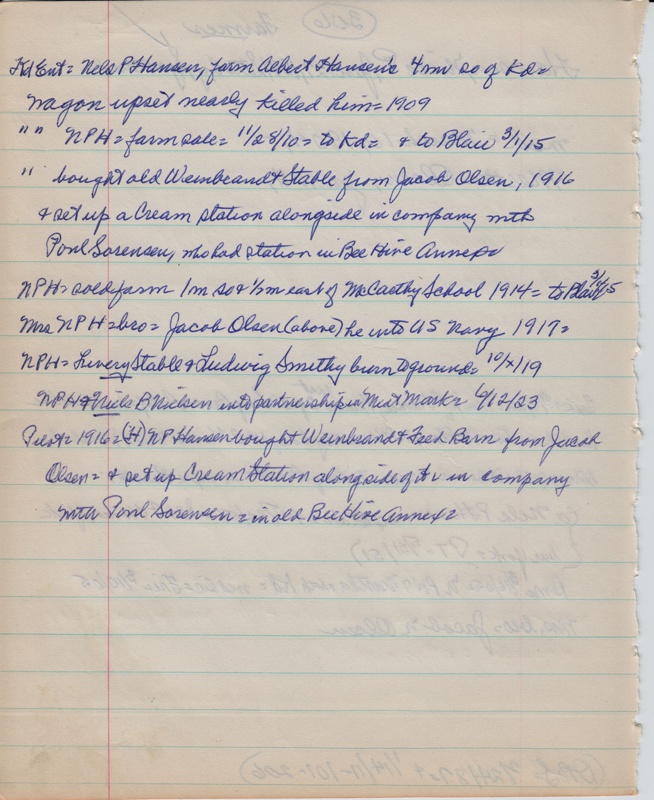 Kd Ent = Nels P Hansen, farm Albert Hansen's 4 mi so of Kd =
wagon upset nearly killed him = 1909
"" NPH = farm sale = 11/28/10 = to Kd = & to Blair 3/1/15
" bought old Weinbrandt Stable from Jacob Olsen, 1916
& set up a Cream station alongside in company with
Poul Sorensen, who had station in Bee Hive Annex =
NPH = sold farm 1 m so & 1/2 m east of McCarthy School 1914 = to Blair 3/1/15
Mrs NPH = bro = Jacob Olsen (above) he into US Navy 1917 =
NPH = Livery Stable & Ludwig Smithy burn to ground = 10/x/19
NPH & Niels B Nielsen into partnership in Meat Mark = 6/12/23
Pilot = 1916 = (H) NP Hansen bought Weinbrandt Feed Barn from Jacob
Olsen = & set up Cream Station alongside of it in company
with Poul Sorensen = in old Bee Hive Annex =